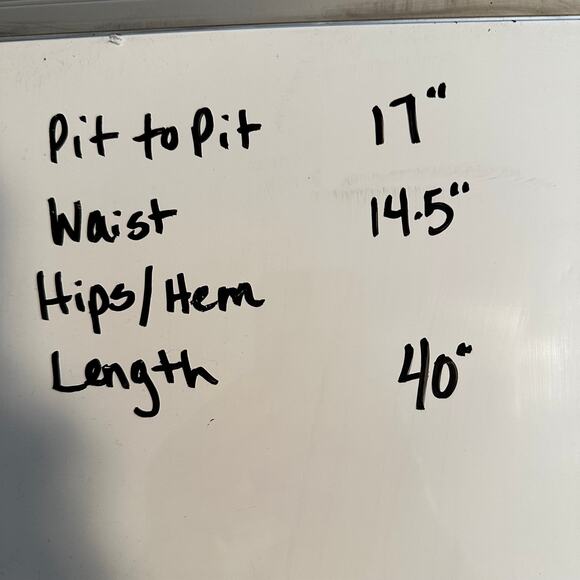 Pit to Pit 17"
Waist 14.5"
Hips/Hem
Length 40"